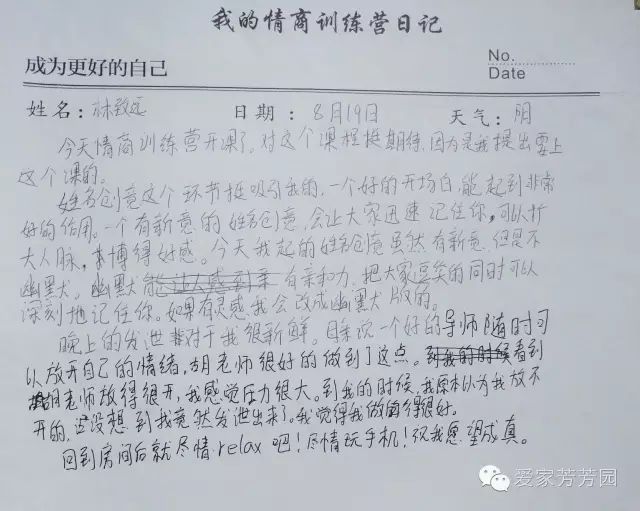 我的情商训练营日记
成为更好的自己
No.
Date
姓名：林致远 日期：8月19日 天气：阴
今天情商训练营开课了。对这个课程挺期待，因为是我提出要上
这个课的。
姓名创意这个环节挺吸引我的，一个好的开场白，能起到非常
好的作用。一个有新意的姓名创意，会让大家迅速记住你，可以扩
大人脉，博得好感。今天我起的姓名创意虽然有新意，但是不
幽默。幽默能让人感到亲有亲和力，把大家逗笑的同时可以
深刻地记住你。如果有灵感，我会改成幽默版的。
晚上的发泄对于我很新鲜。目来说一个好的导师随时可
以放开自己的情绪，胡老师很好的做到了这点。到我的时候看到
胡老师放得很开，我感觉压力很大。到我的时候，我原本以为我放不
开的，还没想到我竟然发泄出来了。我觉得我做得很好。
回到房间后就尽情relax吧！尽情玩手机！祝我愿望成真。
爱家芳芳园